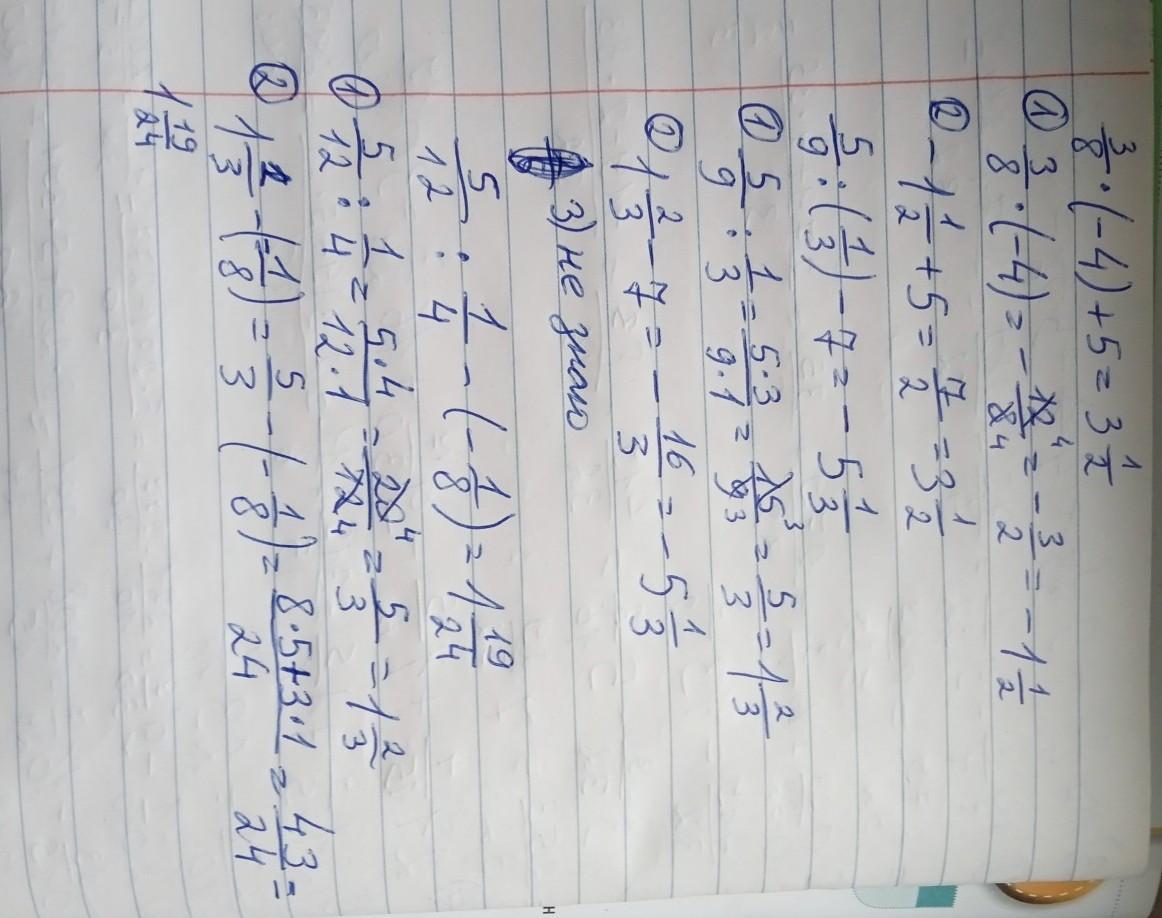 3/8 · (-4) + 5 = 3 1/2
① 3/8 · (-4) = - 12⁴/8₄ = - 3/2 = - 1 1/2
② - 1 1/2 + 5 = 7/2 = 3 1/2
5/9 : (1/3) - 7 = - 5 1/3
① 5/9 : 1/3 = 5·3/9·1 = 15³/9₃ = 5/3 = 1 2/3
② 1 2/3 - 7 = - 16/3 = - 5 1/3
3) не знаю
5/12 : 1/4 - (- 1/8) = 1 19/24
① 5/12 : 1/4 = 5·4/12·1 = 20⁴/12₄ = 5/3 = 1 2/3
② 1 2/3 - (- 1/8) = 5/3 - (- 1/8) = 8·5+3·1/24 = 43/24 =
1 19/24
н